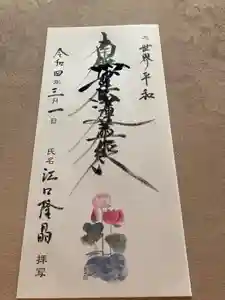 世界平和
南無妙法蓮華経
令和四年三月一日
氏名 江口隆晶 拝写